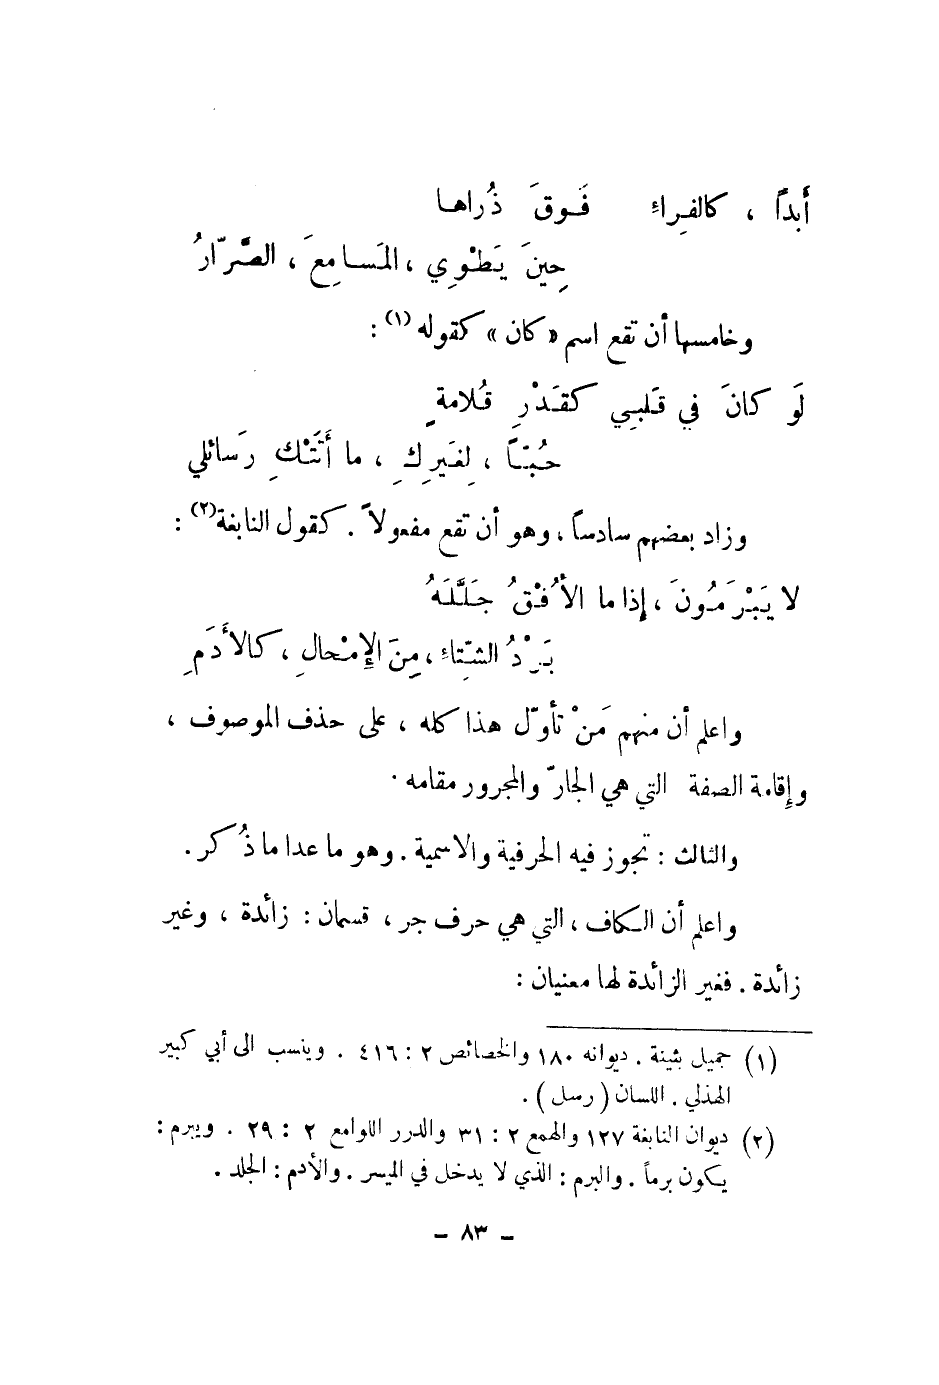 أَبداً ، كالفِراءِ فَـوقَ ذُراهـا
حِينَ يَطْوِي ، المَسامِعَ ، الصَّرّارُ
وخامسها أن تقع اسم «كان» كقوله (١) :
لَو كانَ في قَلبي كقَدْرِ قُلامةٍ
حُبّاً ، لِغَيرِكِ ، ما أَتَتْكِ رَسائلي
وزاد بعضهم سادساً ، وهو أن تقع مفعولاً . كقول النابغة (٢) :
لا يَبْرَمُونَ ، إذا ما الأُفْقُ جَلَّلَهُ
بَرْدُ الشّتاءِ ، مِنَ الإمْحالِ ، كالأَدَمِ
واعلم أن منهم مَنْ تأوّل هذا كله ، على حذف الموصوف ،
وإقامة الصفة التي هي الجارّ والمجرور مقامه .
والثالث : تجوز فيه الحرفية والاسمية . وهو ما عدا ما ذُكر .
واعلم أن الكاف ، التي هي حرف جر ، قسمان : زائدة ، وغير
زائدة . فغير الزائدة لها معنيان :
(١) جميل بثينة . ديوانه ١٨٠ والخصائص ٢ : ٤١٦ . وينسب الى أبي كبير
الهذلي . اللسان ( رسل ) .
(٢) ديوان النابغة ١٢٧ والهمع ٢ : ٣١ والدرر اللوامع ٢ : ٢٩ . ويبرم :
يكون برماً . والبرم : الذي لا يدخل في الميسر . والأدم : الجلد .
- ٨٣ -